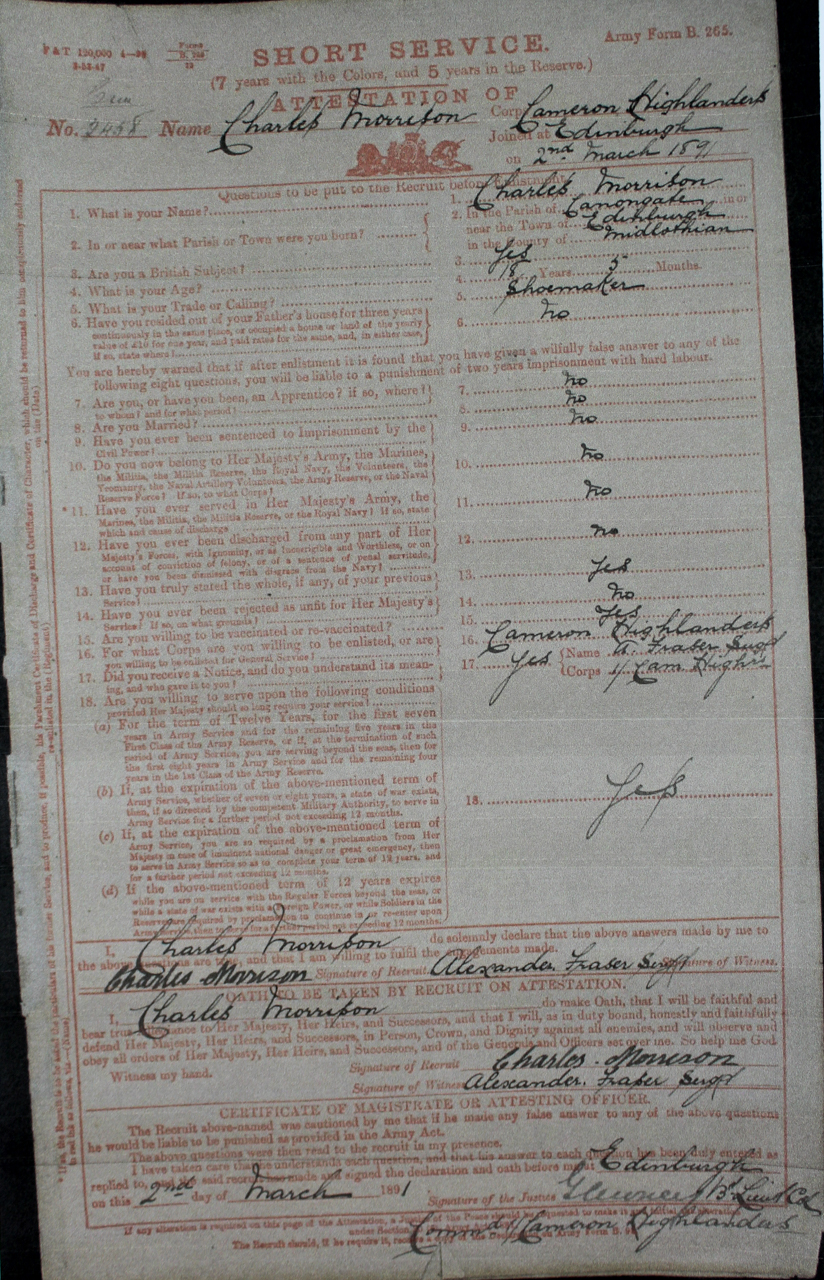 P & T 120,000 4—98 Forms B. 265. 72
Army Form B. 265.
SHORT SERVICE.
(7 years with the Colors, and 5 years in the Reserve.)
ATTESTATION OF
No. Name Charles Morrison Corps Cameron Highlanders
Joined at Edinburgh
on 2nd March 1891
Questions to be put to the Recruit before Enlistment.
1. What is your Name? 1. Charles Morrison
2. In or near what Parish or Town were you born? 2. In the Parish of Canongate in or
near the Town of Edinburgh
in the County of Midlothian
3. Are you a British Subject? 3. Yes
4. What is your Age? 4. 18 Years 5 Months.
5. What is your Trade or Calling? 5. Shoemaker
6. Have you resided out of your Father's house for three years 6. No
continuously in the same place, or occupied a house or land of the yearly
value of £10 for one year, and paid rates for the same, and, in either case,
if so, state where?
You are hereby warned that if after enlistment it is found that you have given a wilfully false answer to any of the
following eight questions, you will be liable to a punishment of two years Imprisonment with hard labour.
7. Are you, or have you been, an Apprentice? if so, where? 7. No
to whom? and for what period?
8. Are you Married? 8. No
9. Have you ever been sentenced to Imprisonment by the 9. No
Civil Power?
10. Do you now belong to Her Majesty's Army, the Marines, 10. No
the Militia, the Militia Reserve, the Royal Navy, the Volunteers, the
Yeomanry, the Naval Artillery Volunteers, the Army Reserve, or the Naval
Reserve Force? If so, to what Corps?
*11. Have you ever served in Her Majesty's Army, the 11. No
Marines, the Militia, the Militia Reserve, or the Royal Navy? If so, state
which and cause of discharge
12. Have you ever been discharged from any part of Her 12. No
Majesty's Forces, with Ignominy, or as Incorrigible and Worthless, or on
account of conviction of felony, or of a sentence of penal servitude,
or have you been dismissed with disgrace from the Navy?
13. Have you truly stated the whole, if any, of your previous 13. Yes
Service?
14. Have you ever been rejected as unfit for Her Majesty's 14. No
Service? If so, on what grounds?
15. Are you willing to be vaccinated or re-vaccinated? 15. Yes
16. For what Corps are you willing to be enlisted, or are 16. Cameron Highlanders
you willing to be enlisted for General Service?
17. Did you receive a Notice, and do you understand its mean- 17. Yes Name A. Fraser Sergt
ing, and who gave it to you? Corps 1/Cam Highrs
18. Are you willing to serve upon the following conditions 18. Yes
provided Her Majesty should so long require your service?
(a) For the term of Twelve Years, for the first seven
years in Army Service and for the remaining five years in the
First Class of the Army Reserve, or if, at the termination of such
period of Army Service, you are serving beyond the seas, then for
the first eight years in Army Service and for the remaining four
years in the 1st Class of the Army Reserve.
(b) If, at the expiration of the above-mentioned term of
Army Service, whether of seven or eight years, a state of war exists,
then, if so directed by the competent Military Authority, to serve in
Army Service for a further period not exceeding 12 months.
(c) If, at the expiration of the above-mentioned term of
Army Service, you are so required by a proclamation from Her
Majesty in case of imminent national danger or great emergency, then
to serve in Army Service so as to complete your term of 12 years, and
for a further period not exceeding 12 months.
(d) If the above-mentioned term of 12 years expires
while you are on service with the Regular Forces beyond the seas, or
while a state of war exists with a Foreign Power, or while Soldiers in the
Reserve are required by proclamation to continue in or re-enter upon
Army Service, then to serve for a further period not exceeding 12 months.
I, Charles Morrison do solemnly declare that the above answers made by me to
the above questions are true, and that I am willing to fulfil the engagements made.
Charles Morrison Signature of Recruit. Alexander Fraser Sergt Signature of Witness.
OATH TO BE TAKEN BY RECRUIT ON ATTESTATION.
I, Charles Morrison do make Oath, that I will be faithful and
bear true allegiance to Her Majesty, Her Heirs, and Successors, and that I will, as in duty bound, honestly and faithfully
defend Her Majesty, Her Heirs, and Successors, in Person, Crown, and Dignity against all enemies, and will observe and
obey all orders of Her Majesty, Her Heirs, and Successors, and of the Generals and Officers set over me. So help me God
Witness my hand. Signature of Recruit Charles. Morrison
Signature of Witness Alexander. Fraser Sergt
CERTIFICATE OF MAGISTRATE OR ATTESTING OFFICER.
The Recruit above-named was cautioned by me that if he made any false answer to any of the above questions
he would be liable to be punished as provided in the Army Act.
The above questions were then read to the recruit in my presence.
I have taken care that he understands each question, and that his answer to each question has been duly entered as
replied to, and the said recruit has made and signed the declaration and oath before me at Edinburgh
on this 2nd day of March 1891 Signature of the Justice Lieut Col
Commdg 1/Cameron Highlanders